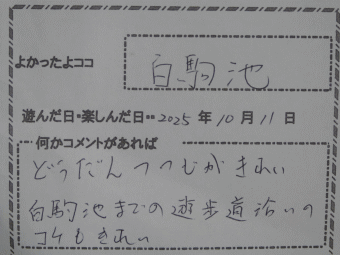 よかったよココ 白駒池
遊んだ日・楽しんだ日・・2025年10月11日
何かコメントがあれば
どうだんつつじがきれい
白駒池までの遊歩道沿いの
コケもきれい